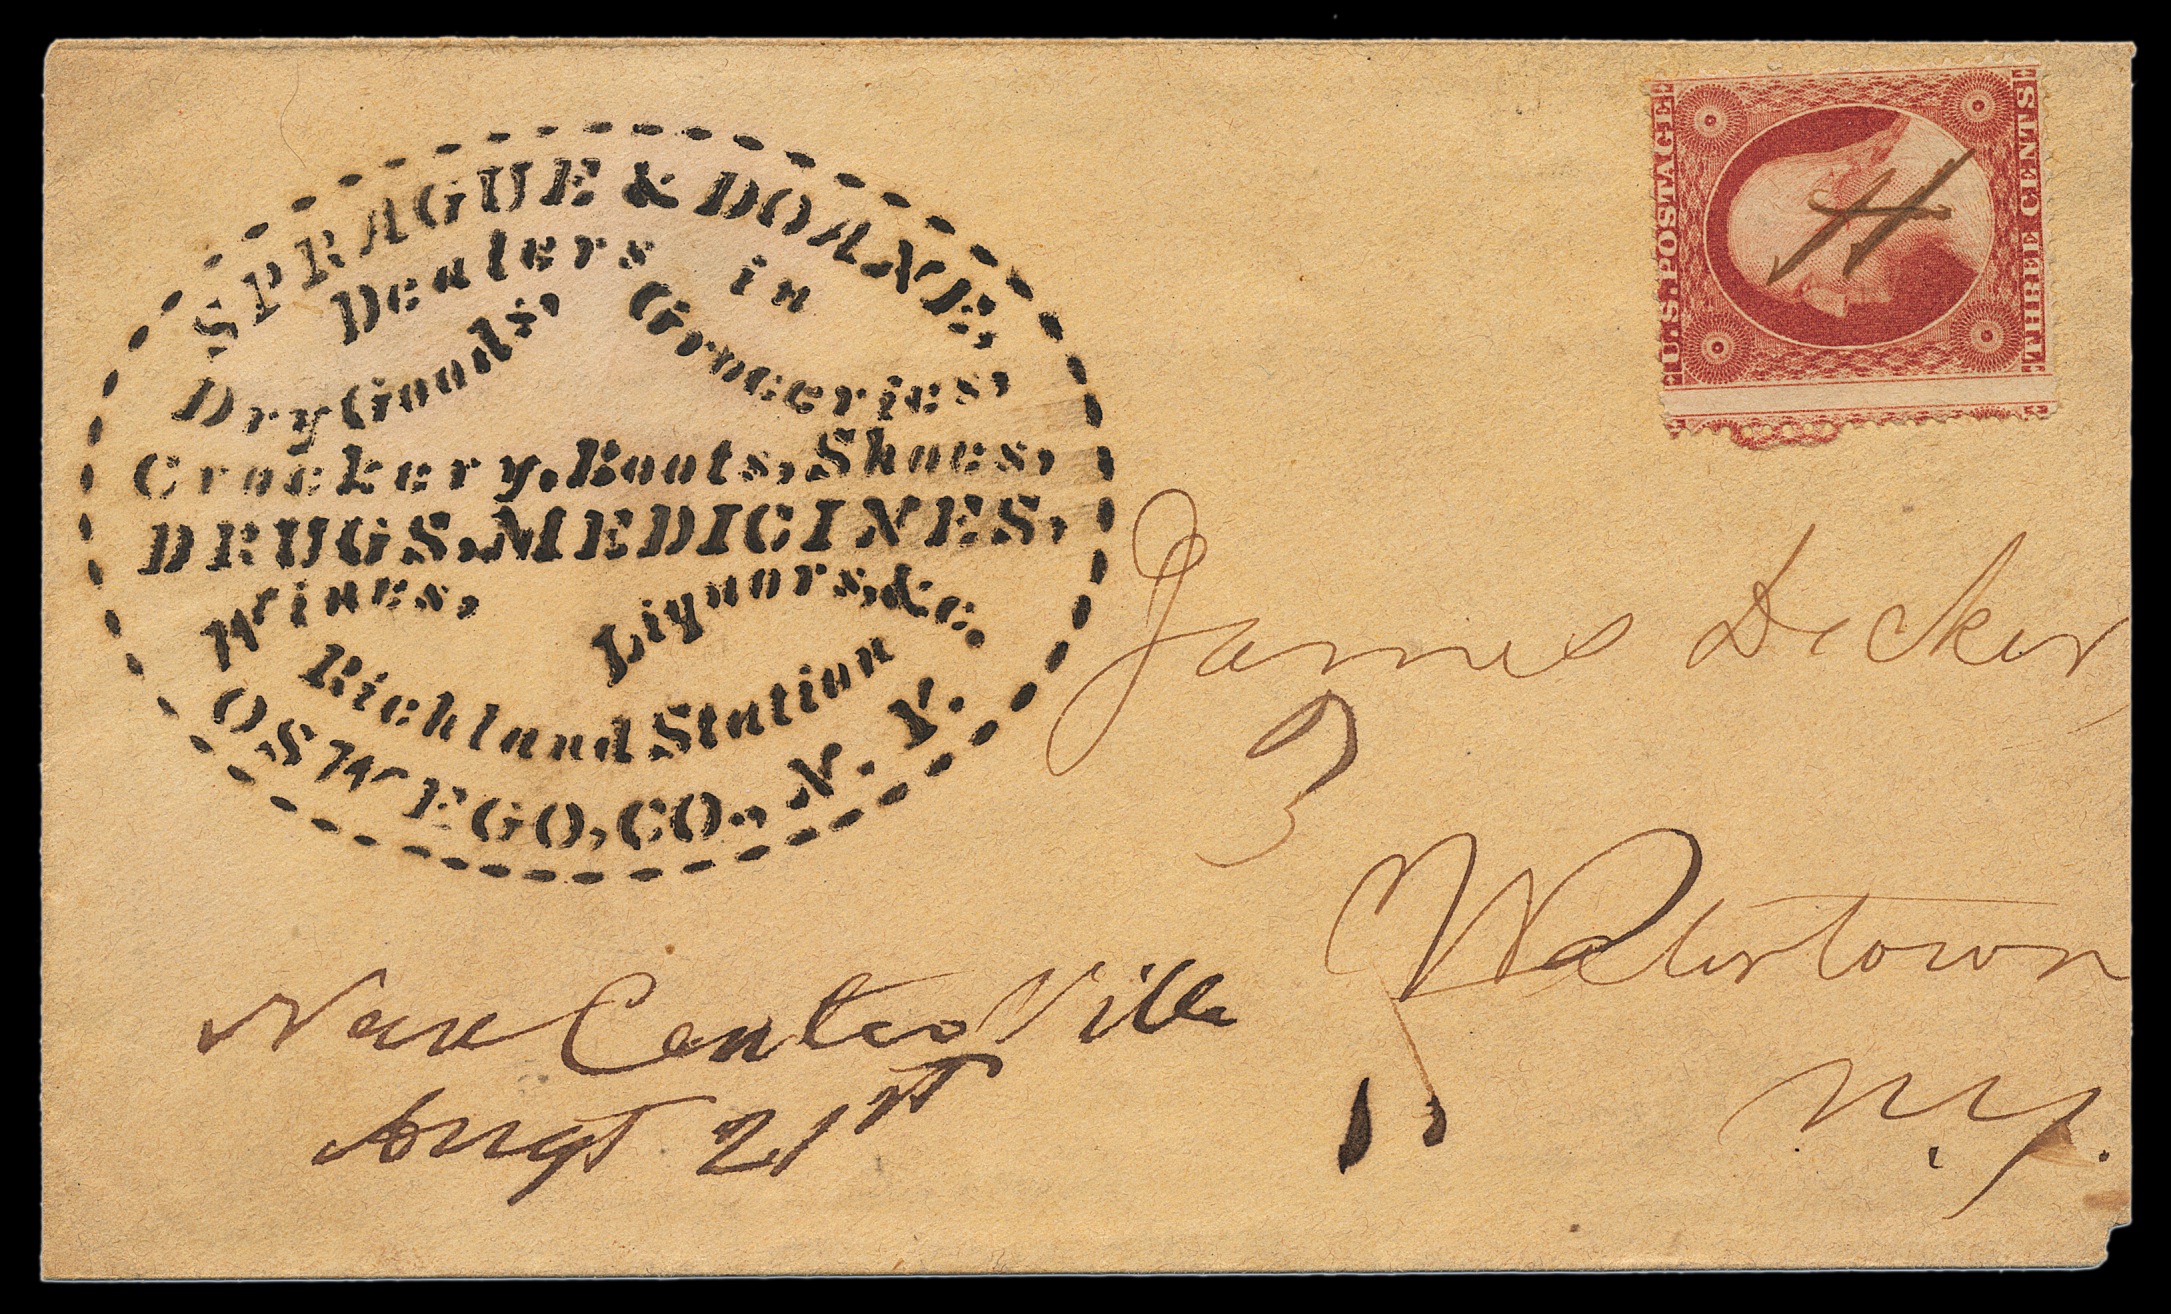 SPRAGUE & DOANE,
Dealers in
Dry Goods, Groceries,
Crockery, Boots, Shoes,
DRUGS, MEDICINES,
Wines, Liquors, &c.
Richland Station
OSWEGO, CO., N. Y.
U.S. POSTAGE
THREE CENTS
H
James Decker
3
Watertown
N.Y.
New CentreVille
Augt 21st